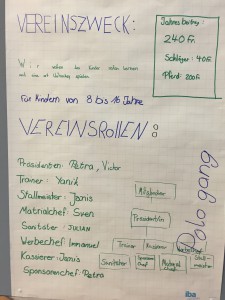 VEREINSZWECK:
Jahresbeitrag:
240 Fr.
Schläger: 40 Fr.
Pferd: 200 Fr.
Wir wollen den Kinder reiten lernen
und
spielen
Für Kindern von 8 bis 16 Jahre
VEREINSROLLEN:
Präsidenten: Petra, Victor
Trainer: Yanik
Stallmeister: Janis
Matrialchef: Sven
Sanitäter: JULIAN
Werbechef: Immanuel
Kassierer: Janis
Sponsornchef: Petra
Mitglieder
Präsident/in
Trainer
Kassierer
Werbechef
Sanitäter
Sponsornchef
Material Chef
Stallmeister
Polo gang
iba